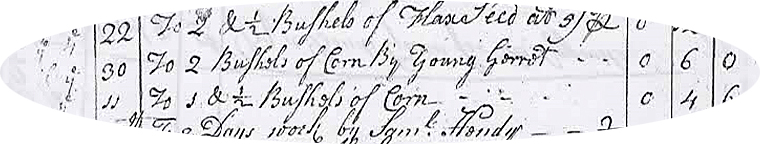 22 To 2 & ½ Bushels of Flax Seed at 5/ 0
30 To 2 Bushels of Corn By Young Gerret - - 0 6 0
11 To 1 & ½ Bushels of Corn - - - 0 4 6
To 2 Days work by Saml. Hendy - - 2